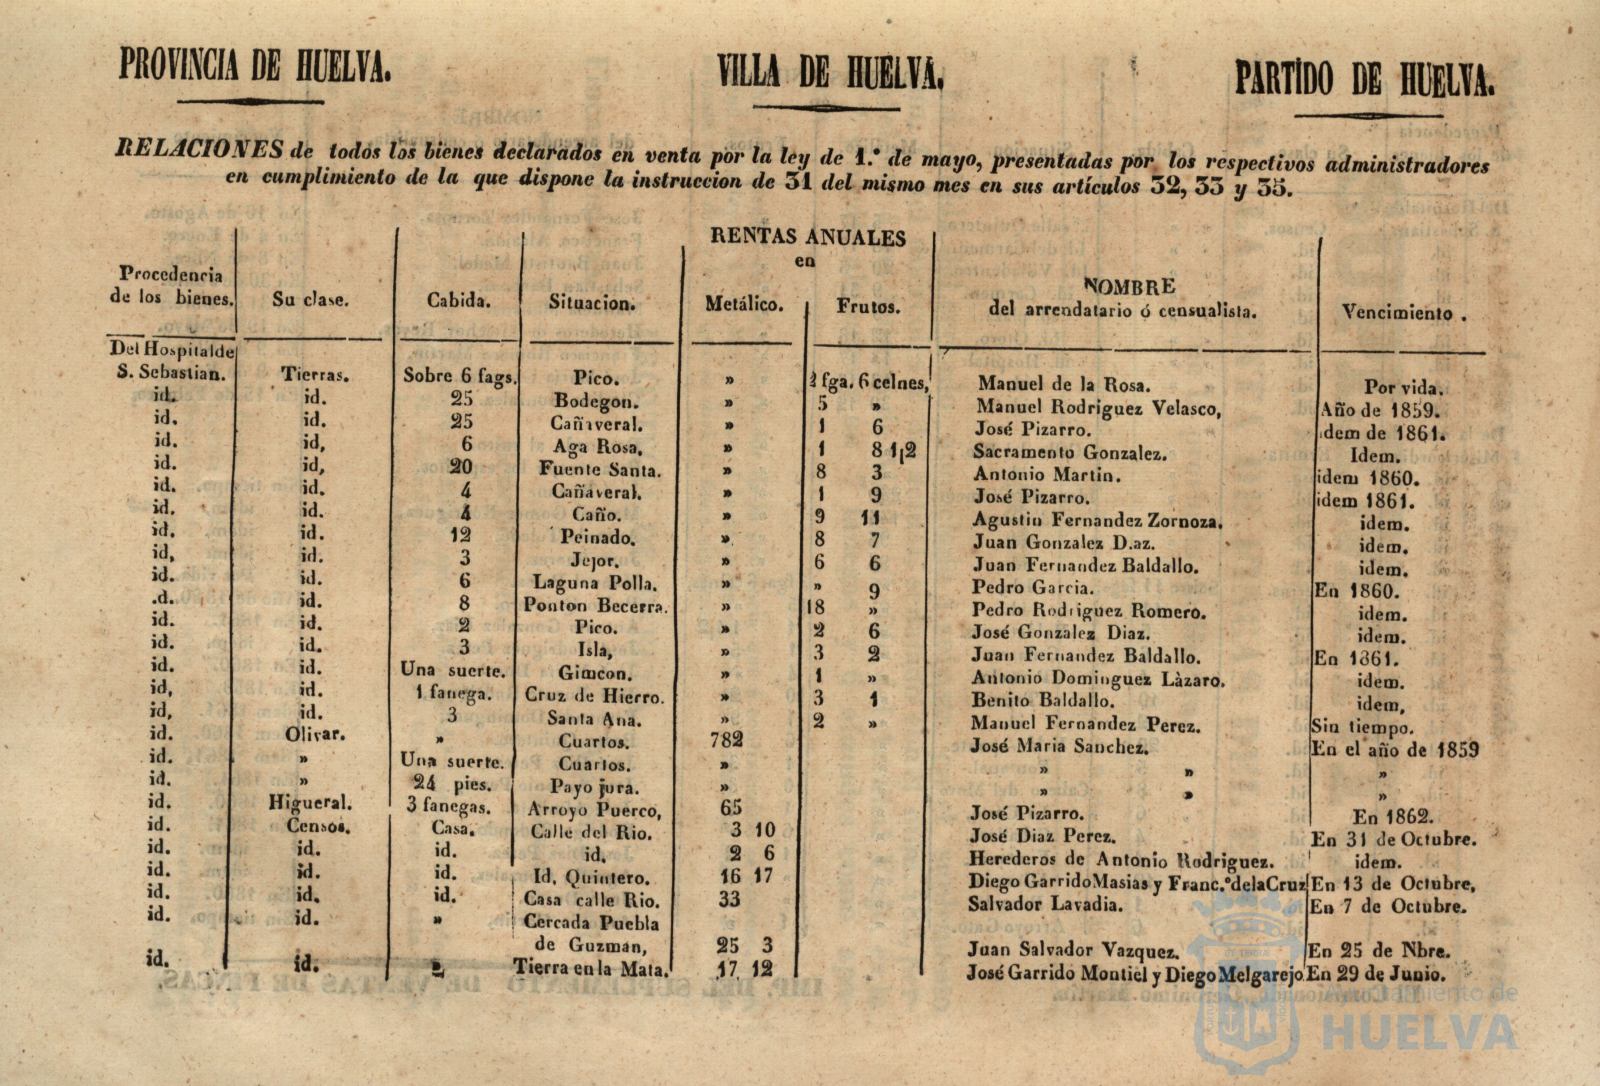 PROVINCIA DE HUELVA. VILLA DE HUELVA. PARTIDO DE HUELVA.
RELACIONES de todos los bienes declarados en venta por la ley de 1.º de mayo, presentadas por los respectivos administradores
en cumplimiento de la que dispone la instruccion de 31 del mismo mes en sus artículos 32, 33 y 35.
RENTAS ANUALES
en
Procedencia
de los bienes. Su clase. Cabida. Situacion. Metálico. Frutos. NOMBRE
del arrendatario ó censualista. Vencimiento .
Del Hospital de
S. Sebastian. Tierras. Sobre 6 fags. Pico. » 2 fga. 6 celnes, Manuel de la Rosa. Por vida.
id. id. 25 Bodegon. » 5 » Manuel Rodriguez Velasco, Año de 1859.
id. id. 25 Cañaveral. » 1 6 José Pizarro. idem de 1861.
id. id, 6 Aga Rosa, » 1 8 1¡2 Sacramento Gonzalez. Idem.
id. id, 20 Fuente Santa. » 8 3 Antonio Martin. idem 1860.
id. id. 4 Cañaveral. » 1 9 José Pizarro. idem 1861.
id. id. 4 Caño. » 9 11 Agustin Fernandez Zornoza. idem.
id. id. 12 Peinado. » 8 7 Juan Gonzalez D.az. idem.
id, id. 3 Jejor. » 6 6 Juan Fernandez Baldallo. idem.
id. id. 6 Laguna Polla. » » 9 Pedro Garcia. En 1860.
.d. id. 8 Ponton Becerra. » 18 » Pedro Rodriguez Romero. idem.
id. id. 2 Pico. » 2 6 José Gonzalez Diaz. idem.
id. id. 3 Isla, » 3 2 Juan Fernandez Baldallo. En 1861.
id. id. Una suerte. Gimcon. » 1 » Antonio Dominguez Làzaro. idem.
id, id. 1 fanega. Cruz de Hierro. » 3 1 Benito Baldallo. idem,
id, id. 3 Santa Ana. » 2 » Manuel Fernandez Perez. Sin tiempo.
id. Olivar. » Cuartos. 782 José Maria Sanchez. En el año de 1859
id. » Una suerte. Cuartos. » » » »
id. » 24 pies. Payo jura. » » » »
id. Higueral. 3 fanegas. Arroyo Puerco, 65 José Pizarro. En 1862.
id. Censos. Casa. Calle del Rio. 3 10 José Diaz Perez. En 31 de Octubre.
id. id. id. id. 2 6 Herederos de Antonio Rodriguez. idem.
id. id. id. Id, Quintero. 16 17 Diego Garrido Masias y Franc.º de la Cruz En 13 de Octubre,
id. id. id. Casa calle Rio. 33 Salvador Lavadia. En 7 de Octubre.
id. id. » Cercada Puebla
de Guzman, 25 3 Juan Salvador Vazquez. En 25 de Nbre.
id. id. Tierra en la Mata. 17 12 José Garrido Montiel y Diego Melgarejo En 29 de Junio.
Ayuntamiento de
HUELVA